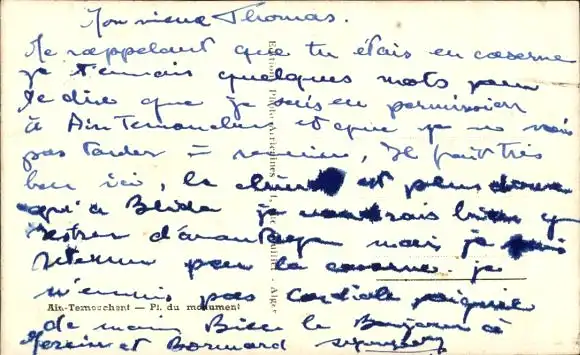 Mon vieux Thomas.
Me rappelant que tu étais en caserne
je t'envais quelques mots pour
te dire que je suis en permission
à Ain Temouchent et que je ne vais
pas tarder à revenir, Il fait très
bon ici, le climat est plus doux
qu'à Blida je voudrais bien y
rester d'avantage mais je suis
retenu par la caserne. je
m'ennuis pas Cordiale poignée
Ain-Temouchent — Pl. du monument
de main Bise le Bonjour à
et Bormard
Alger